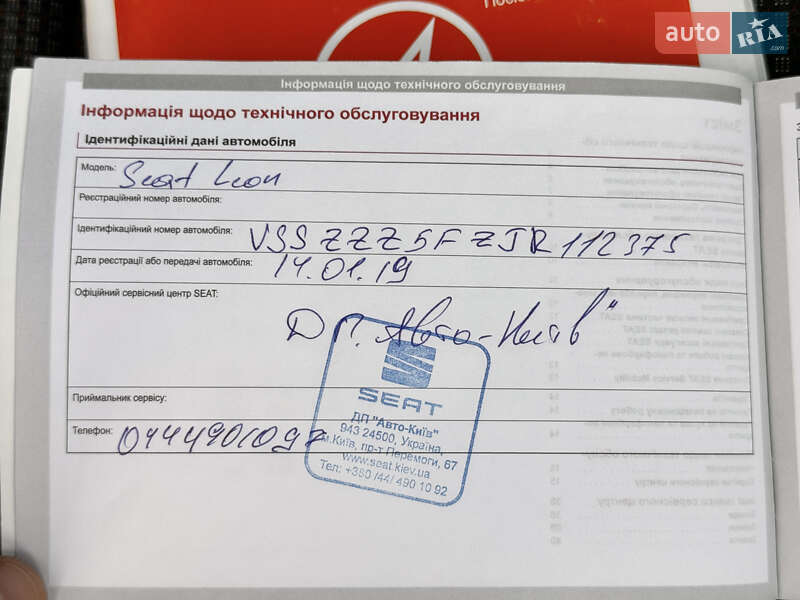 auto RIA.com
Інформація щодо технічного обслуговування
Інформація щодо технічного обслуговування
Ідентифікаційні дані автомобіля
Модель: Seat Leon
Реєстраційний номер автомобіля:
Ідентифікаційний номер автомобіля: VSSZZZ5FZJR112375
Дата реєстрації або передачі автомобіля: 14.01.19
Офіційний сервісний центр SEAT:
ДП "Авто-Київ"
SEAT
ДП "Авто-Київ"
943 24500, Україна,
м.Київ, пр-т Перемоги, 67
www.seat.kiev.ua
Тел: +380 /44/ 490 10 92
Приймальник сервісу:
Телефон: 0444901097